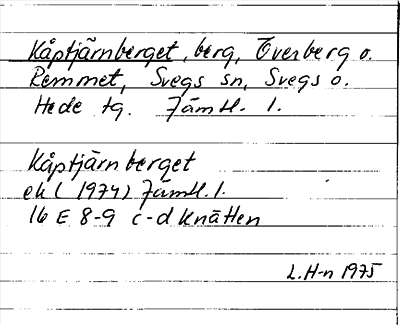 Kåptjärnberget, berg, Överberg o.
Remmet, Svegs sn, Svegs o.
Hede tg. Jämtl. l.
Kåptjärnberget
ek (1974) Jämtl. l.
16 E 8-9 c-d Knätten
L.H-n 1975